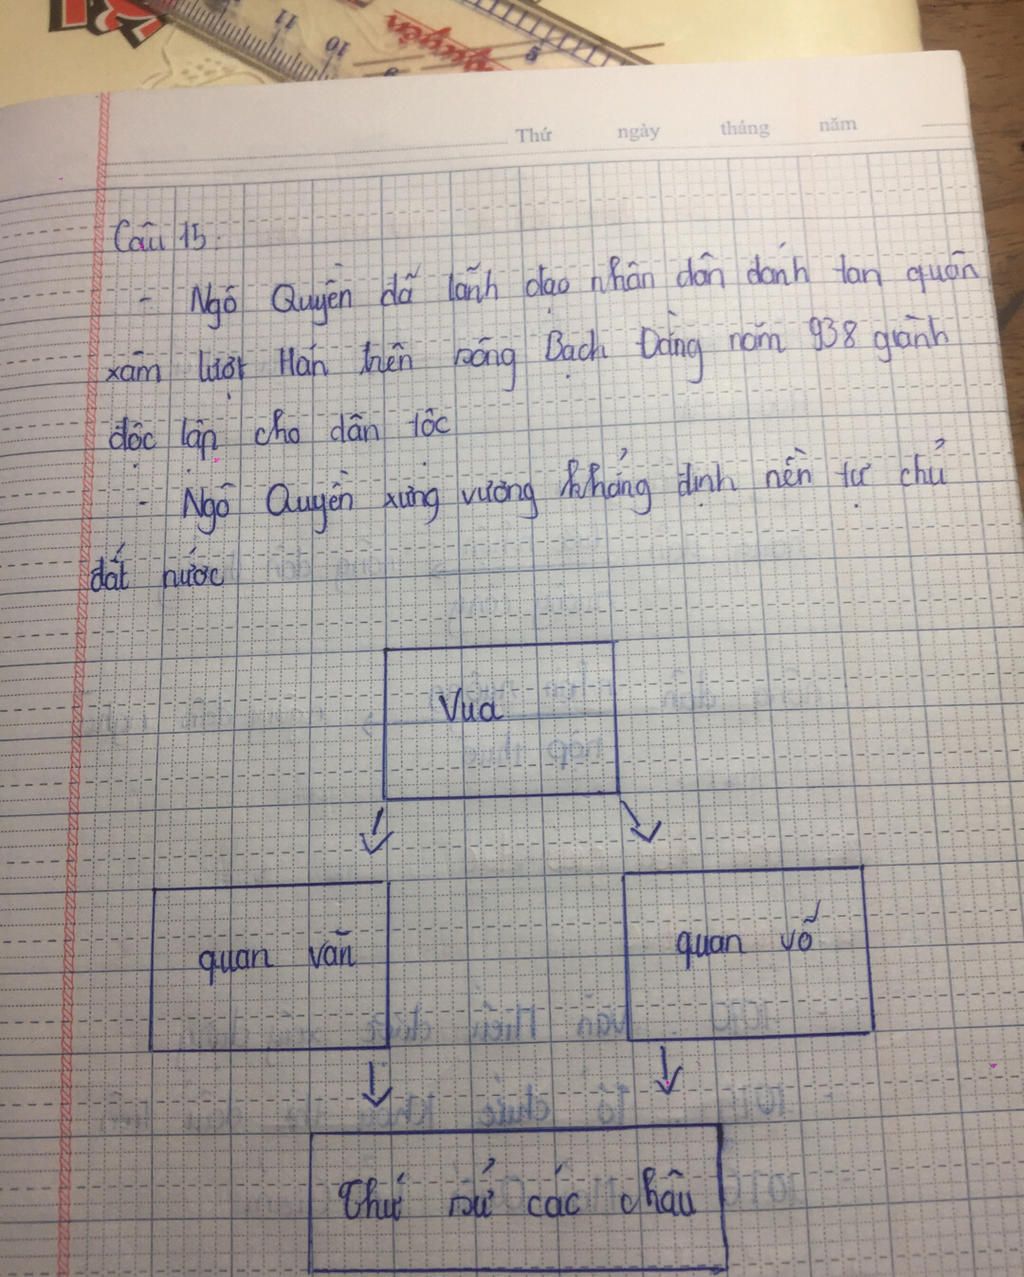 11
10
9
8
Thứ ngày tháng năm
Câu 15:
- Ngô Quyền đã lãnh đạo nhân dân đánh tan quân
xâm lượt Hán trên sông Bạch Đằng năm 938 giành
độc lập cho dân tộc
- Ngô Quyền xưng vương khẳng định nền tự chủ
đất nước
Vua
quan văn
quan võ
Thứ sử các châu